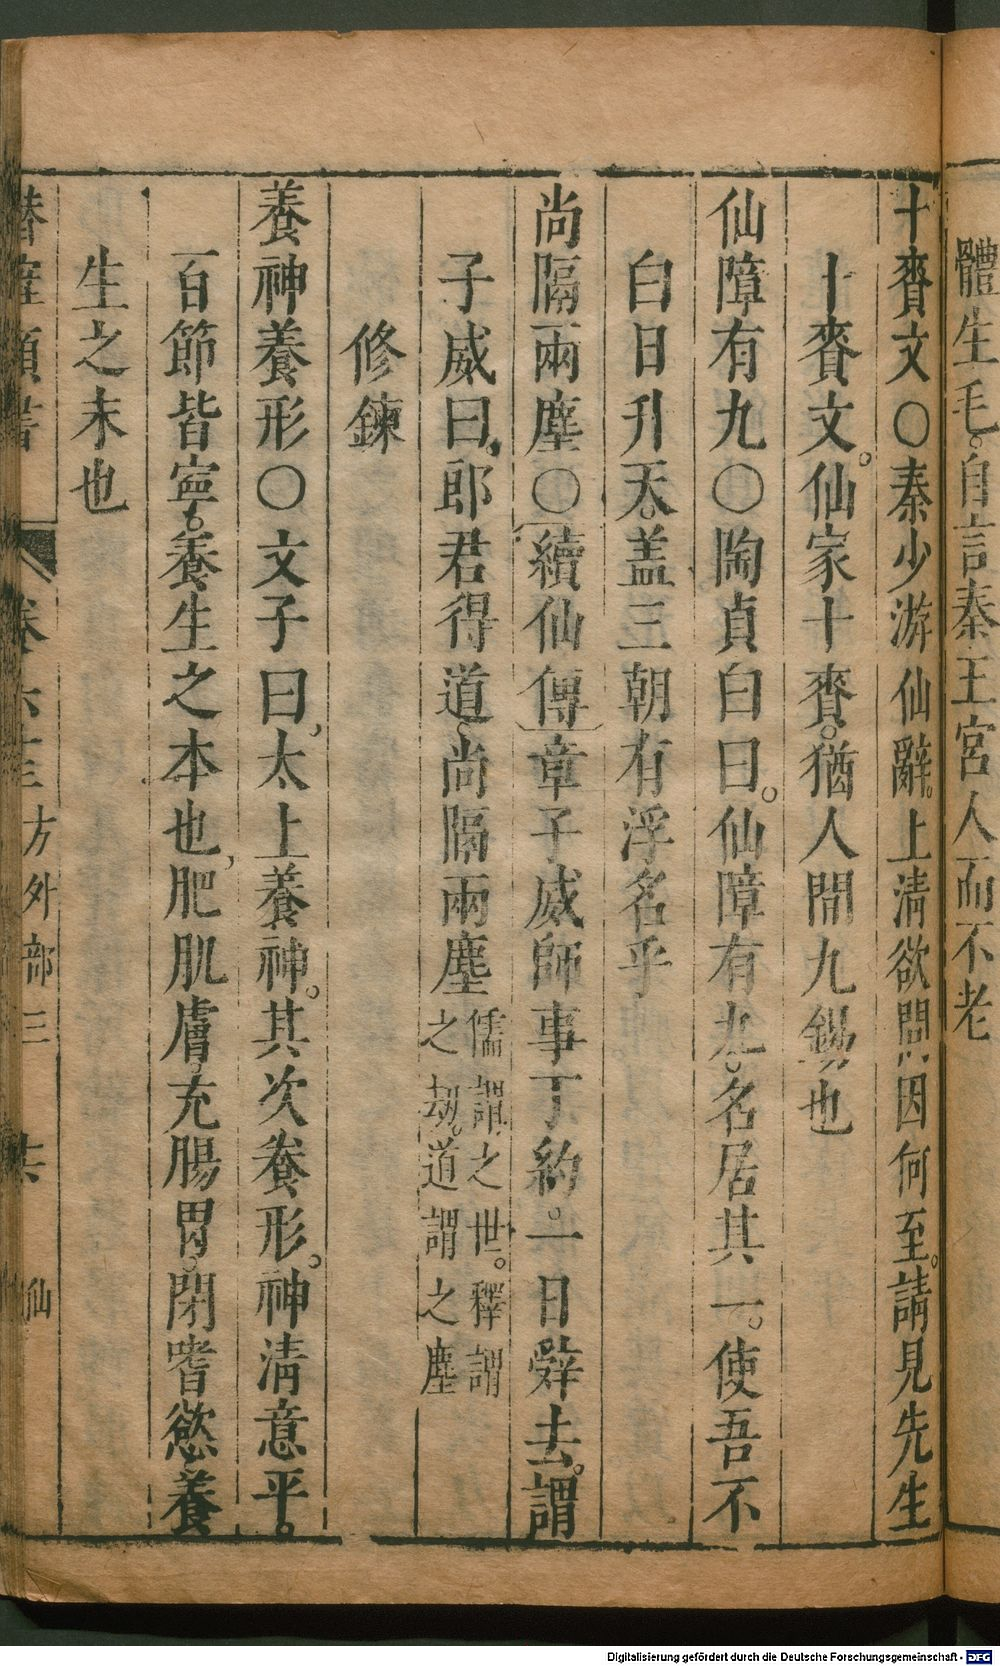 體生毛。自言秦王宮人而不老
十賚文〇秦少游仙辭。上淸欲問因何至。請見先生
十賚文。仙家十賚。猶人間九錫也
仙障有九〇陶貞白曰。仙障有九。名居其一。使吾不
白日升天。盖三朝有浮名乎
尚隔兩塵〇續仙傳章子威師事丁約。一日辤去。謂
子威曰。郎君得道。尚隔兩塵儒謂之世。釋謂
之劫。道謂之塵
修鍊
養神養形〇文子曰。太上養神。其次養形。神淸意平。
百節皆寧。養生之本也。肥肌膚。充腸胃。閉嗜慾。養
生之末也
卷 方外部三 仙
Digitalisierung gefördert durch die Deutsche Forschungsgemeinschaft - DFG